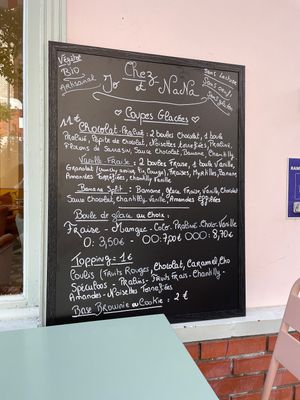 Végétal
BIO
Artisanal
Chez
Jo et NaNa
Sans Lactose
Sans oeufs
Sans gluten
Coupes Glacées
11€
Chocolat-Praliné : 2 boules Chocolat, 1 boule
Praliné, Pépites de Chocolat, Noisettes torréfiées, Praliné,
de Sarrasin, Sauce Chocolat, Banane, Chantilly
Vanille Fraise : 2 boules Fraise, 1 boule Vanille,
Granola
Amandes torréfiées, chantilly, Vanille.
Banana Split : Banane, Glace Fraise, Vanille, Chocolat
Sauce Chocolat, Chantilly, Vanille, Amandes Effilées
Boule de glace au choix :
Fraise - Mangue - Coco - Praliné - Choco - Vanille
O : 3,50€ - OO : 7,00€ OOO : 8,70€
Topping : 1€
Coulis (Fruits Rouges, Chocolat, Caramel, Cho
Spéculoos - Pralin - Fruits Frais - Chantilly -
Amandes - Noisettes Torréfiées
Base Brownie ou Cookie : 2€